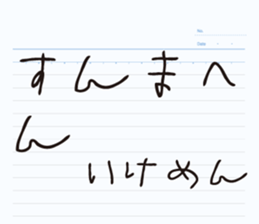 No.
Date
すんまへ
ん
いけめん